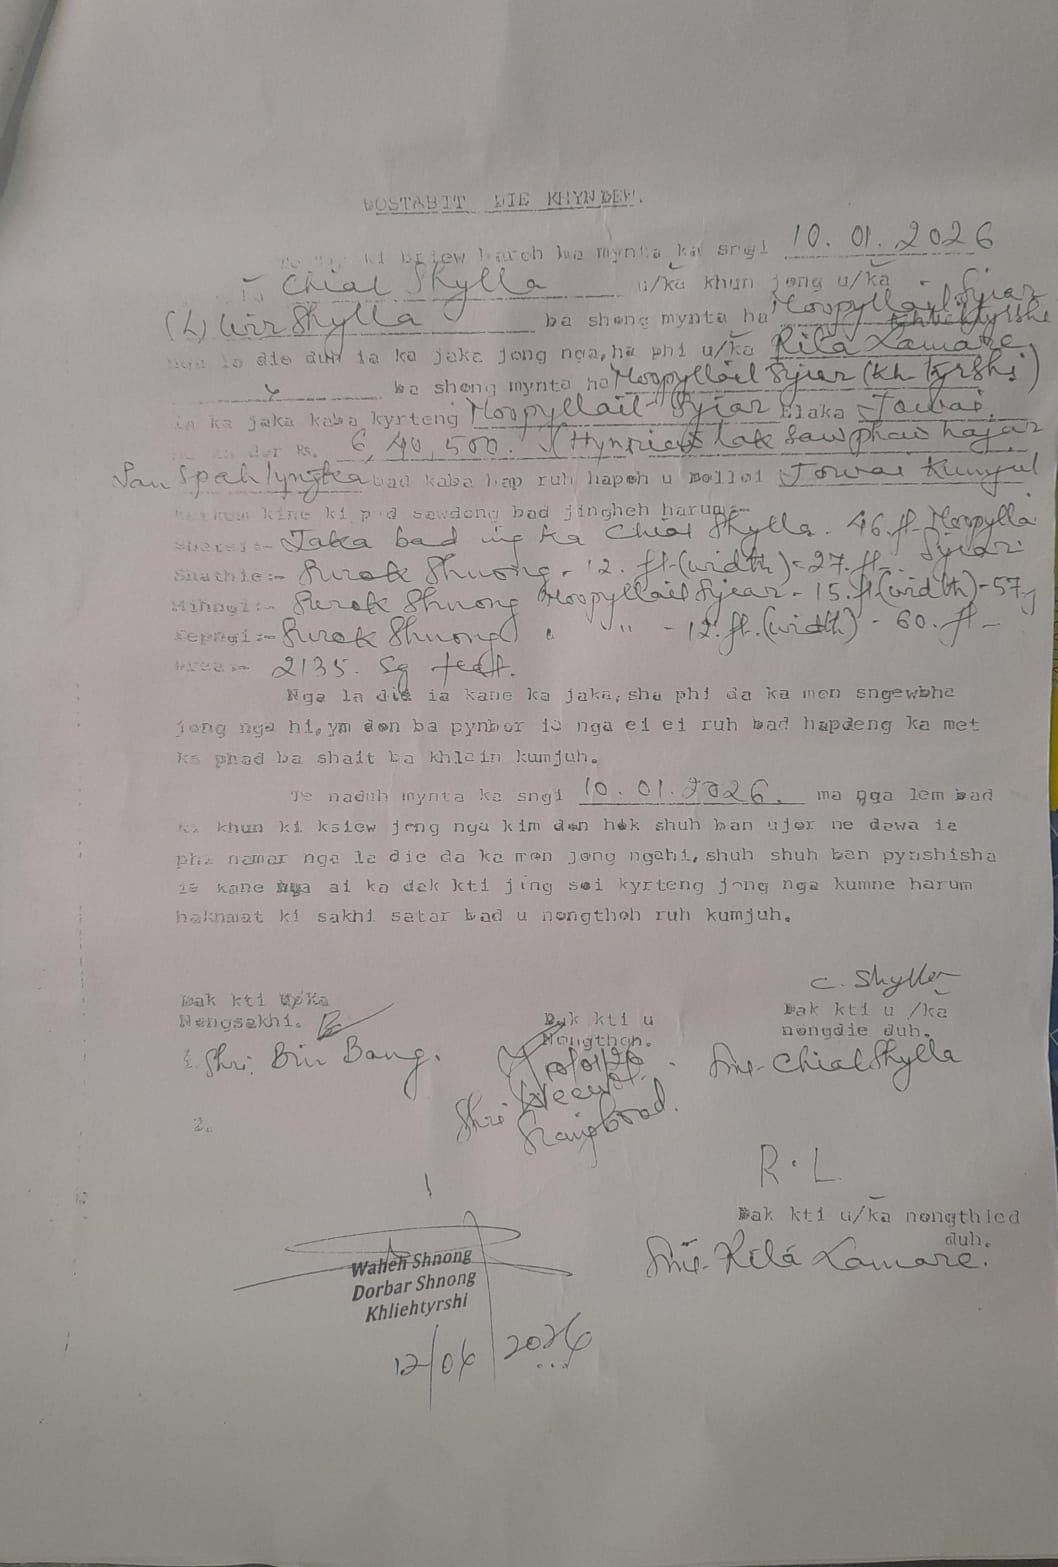 DOSTABIT DIE KHYNDEW.
ki briew baroh ba mynta ka sngi 10.01.2026
Chial Shylla u/ka khun jong u/ka
(L) Wir Shylla ba shong mynta ha Moopyllait Syiar
Khliehtyrshi
nga la die duh ia ka jaka jong nga, ha phi u/ka Rilá Lamare
ba shong mynta ha Moopyllait Syiar (Kh Tyrshi)
ia ka jaka kaba kyrteng Moopyllait Syiar Elaka Jowai.
dor Rs. 6,40,500. (Hynriew lak Saw phew hajar
San Spah lyngka bad kaba hap ruh hapoh u Molloi Jowai
kine ki pud sawdong bad jingheh harum:-
Shatei:- Jaka bad ing ka Chial Shylla. 46.ft. Moopylla
Syiar.
Shathie:- Surok Shnong - 12. ft (width) = 27. ft -
Mihngi:- Surok Shnong Moopyllait Syiar - 15. ft (width) - 57
Sepngi:- Surok Shnong " " - 12. ft. (width) - 60. ft -
Area:- 2135. Sq feet.
Nga la die ia kane ka jaka, sha phi da ka mon sngewbha
jong nga hi, ym don ba pynbor ia nga ei ei ruh bad hapdeng ka met
ka phad ba shait ba khlain kumjuh.
Te naduh mynta ka sngi 10.01.2026. ma nga lem bad
ki khun ki ksiew jong nga kim don hok shuh ban ujor ne dawa ia
phi namar nga la die da ka mon jong ngahi, shuh shuh ban pynshisha
ia kane nga ai ka dak kti jing soi kyrteng jong nga kumne harum
hakhmat ki sakhi satar bad u nongthoh ruh kumjuh.
C. Shylla
Dak kti u/ka
Nongsakhi.
Dak kti u
Nongthoh.
Dak kti u /ka
nongdie duh.
1. Shri. Bin Bang.
Smt- Chial Shylla
Shri
2.
R.L
Dak kti u/ka nongthied
duh.
Smt- Rilá Lamare.
Waheh Shnong
Dorbar Shnong
Khliehtyrshi